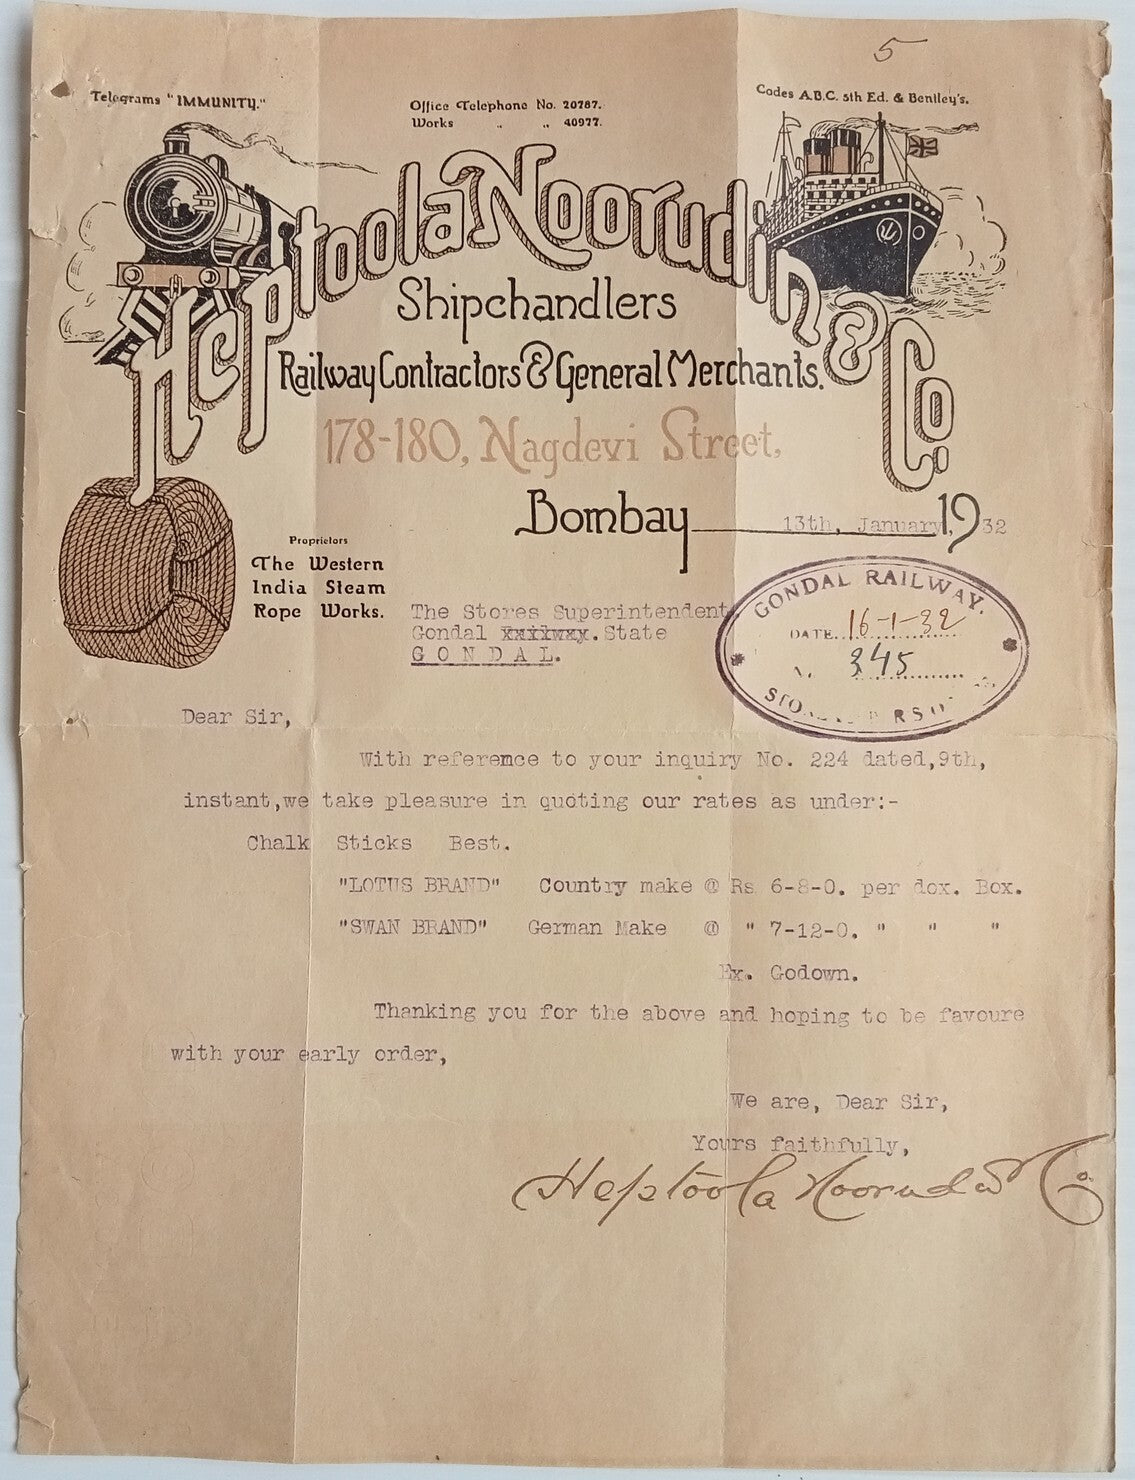 5
Telegrams "IMMUNITY."
Office Telephone No. 20787.
Works " " 40977.
Codes A.B.C. 5th Ed. & Bentley's.
Heptoola Noorudin & Co.
Shipchandlers
Railway Contractors & General Merchants.
178-180, Nagdevi Street,
Bombay 13th, January, 1932
Proprietors
The Western
India Steam
Rope Works.
The Stores Superintendent
Gondal Railway. State
GONDAL.
GONDAL RAILWAY.
DATE. 16-1-32
345
Dear Sir,
With reference to your inquiry No. 224 dated,9th,
instant,we take pleasure in quoting our rates as under:-
Chalk Sticks Best.
"LOTUS BRAND" Country make @ Rs 6-8-0. per dox. Box.
"SWAN BRAND" German Make @ " 7-12-0. " " "
Ex. Godown.
Thanking you for the above and hoping to be favoure
with your early order,
We are, Dear Sir,
Yours faithfully,
Heptoola Noorudin Co.